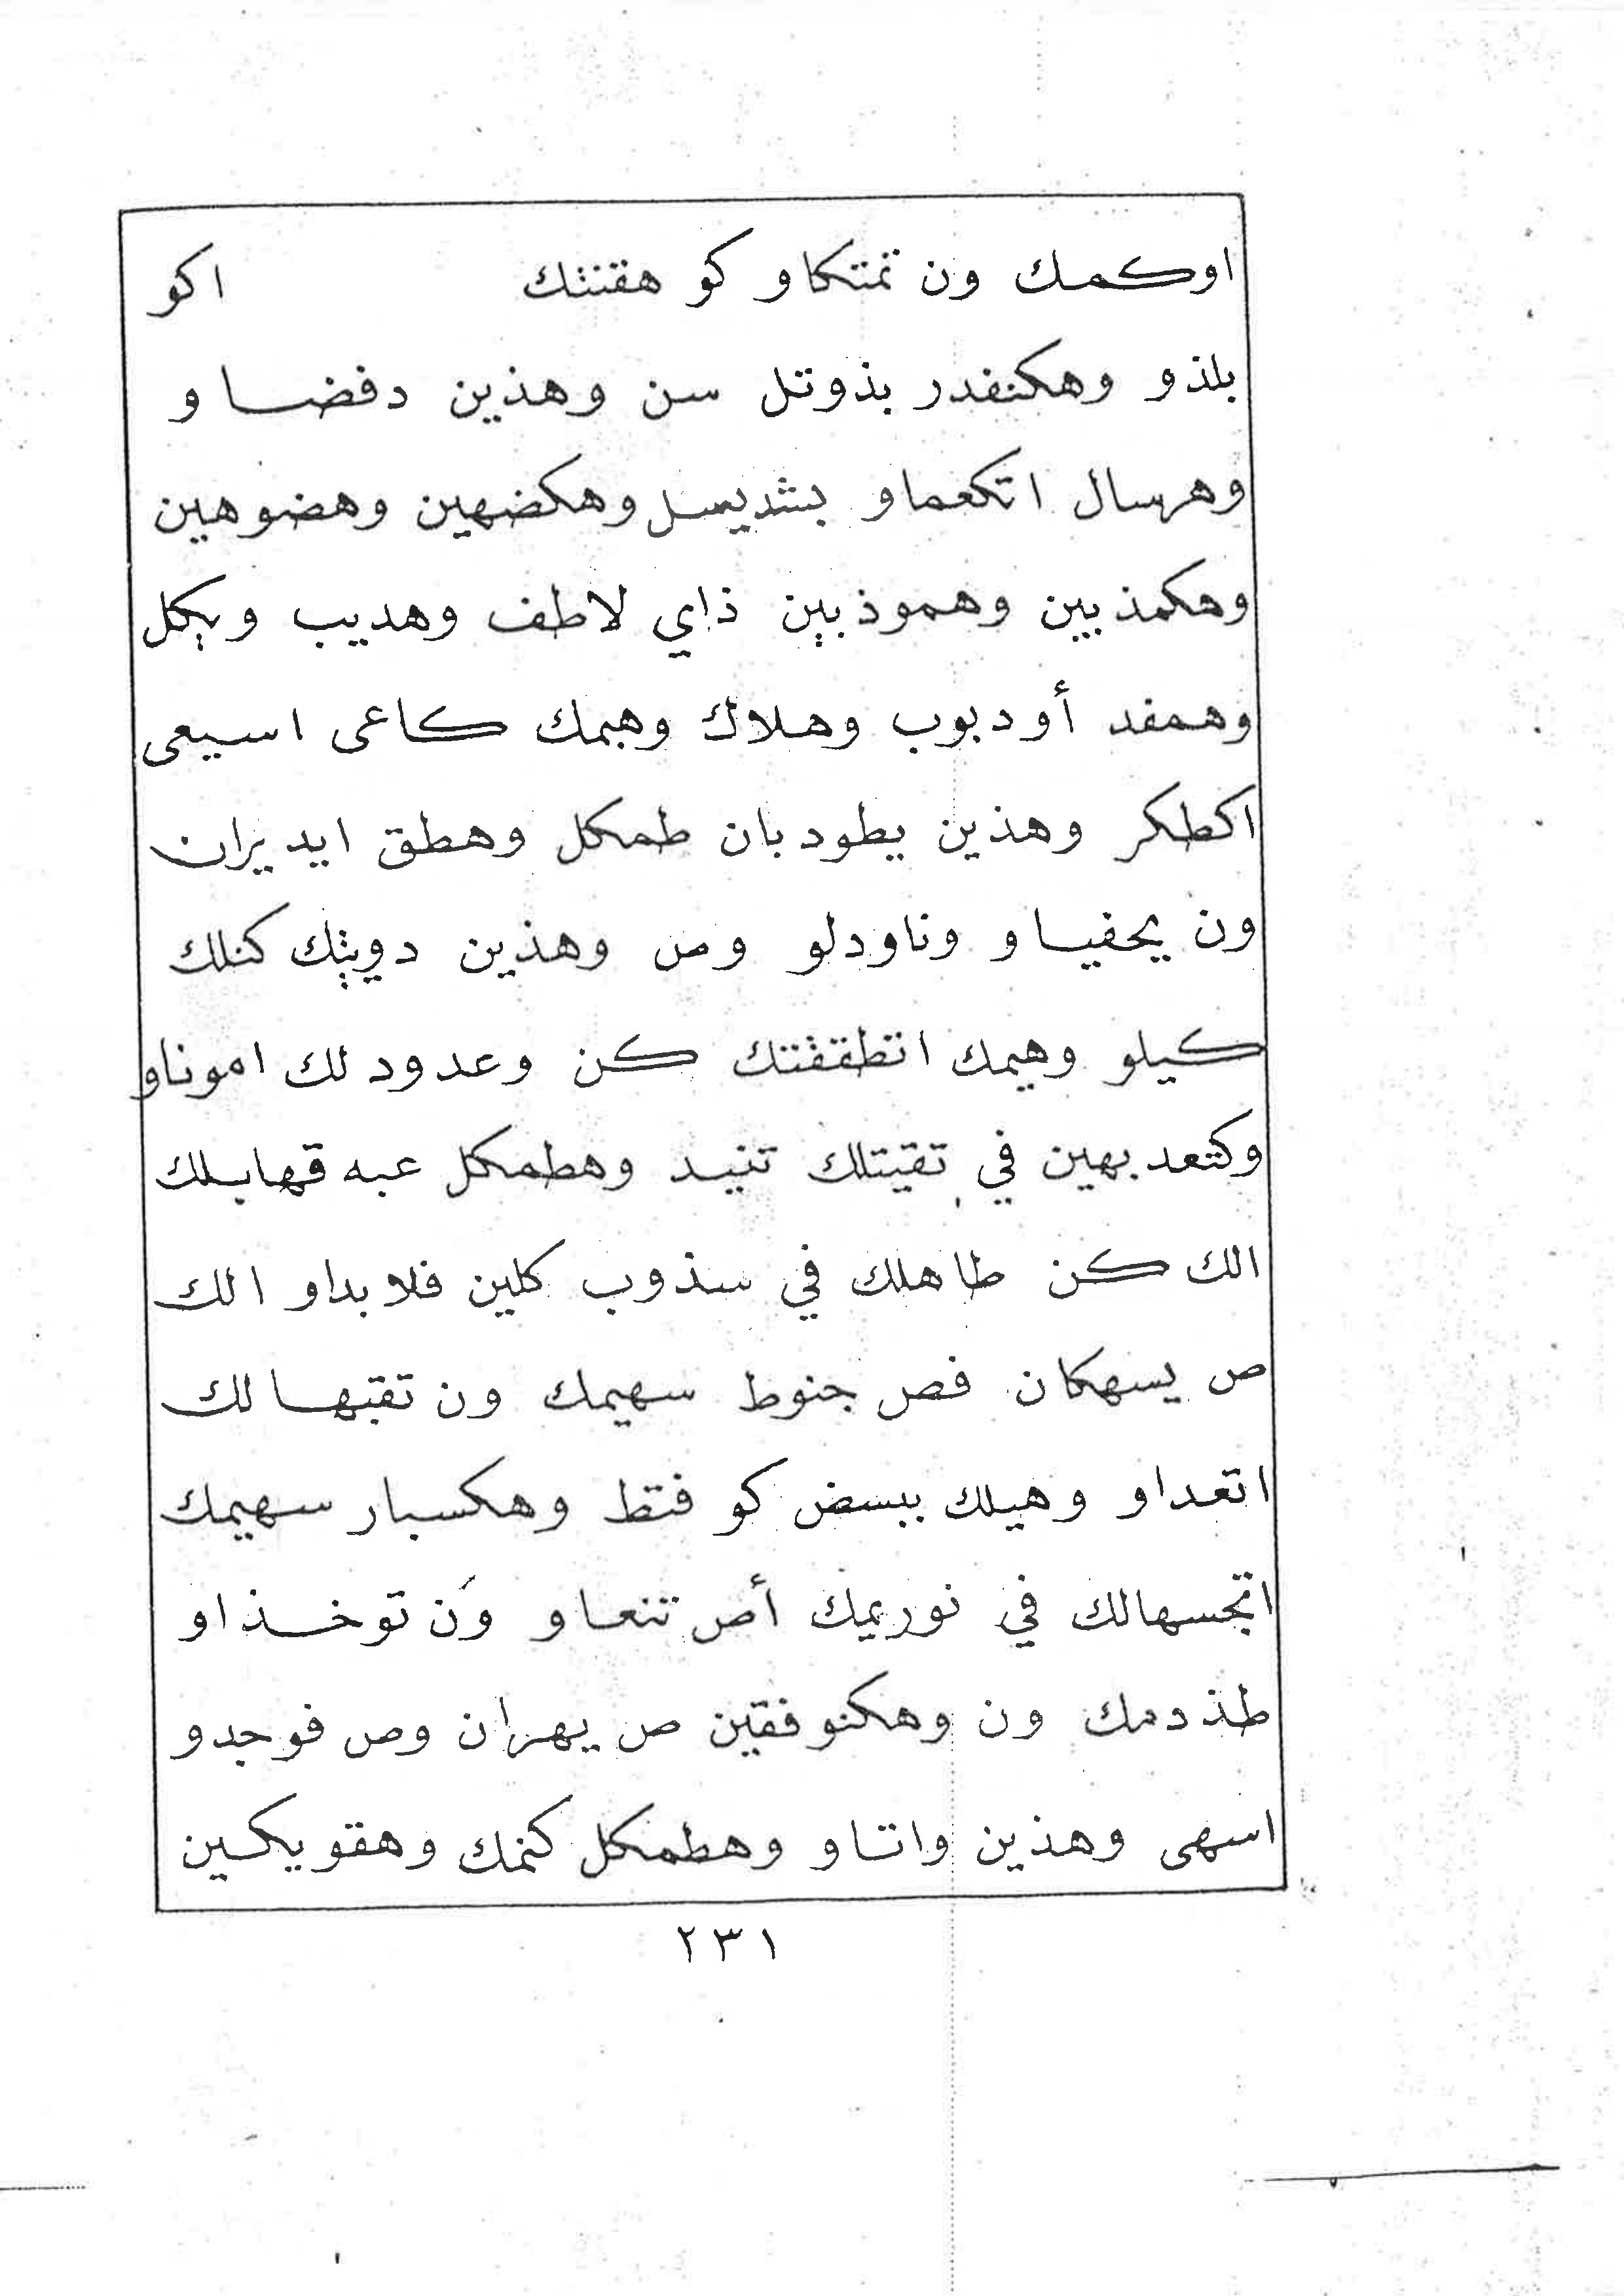 اوكمك ون تمتكاو كو هقنتك اكو
بلذو وهكنفدر بذوتل سن وهذين دفضاو
وهرسال اتكعماو بشديسل وهكضهين وهضوهين
وهكمذيين وهموذبين ذاي لاطف وهديب وبكل
وهمفد أودبوب وهلاك وهبمك كاعى اسيعى
اكطكر وهذين يطودبان طمكل وهطق ايديران
ون يحفياو وناودلو وص وهذين دويثك كنلك
كيلو وهيمك اتطقفتك كن وعدود لك اموناو
وكتعدبهين في تقيتلك تنيد وهطمكل عبه قهابلك
الك كن طاهلك في سذوب كلين فلابداو الك
ص يسهكان فص جنوط سهيمك ون تقبهالك
اتعداو وهيلك ببسض كو فتظ وهكسبار سهيمك
اتجسهالك في نوريمك أص تنعاو وَن توخذاو
طذدمك ون وهكنوفقين ص يهران وص فوجدو
اسهى وهذين واتاو وهطمكل كنمك وهقويكسين
٢٣١